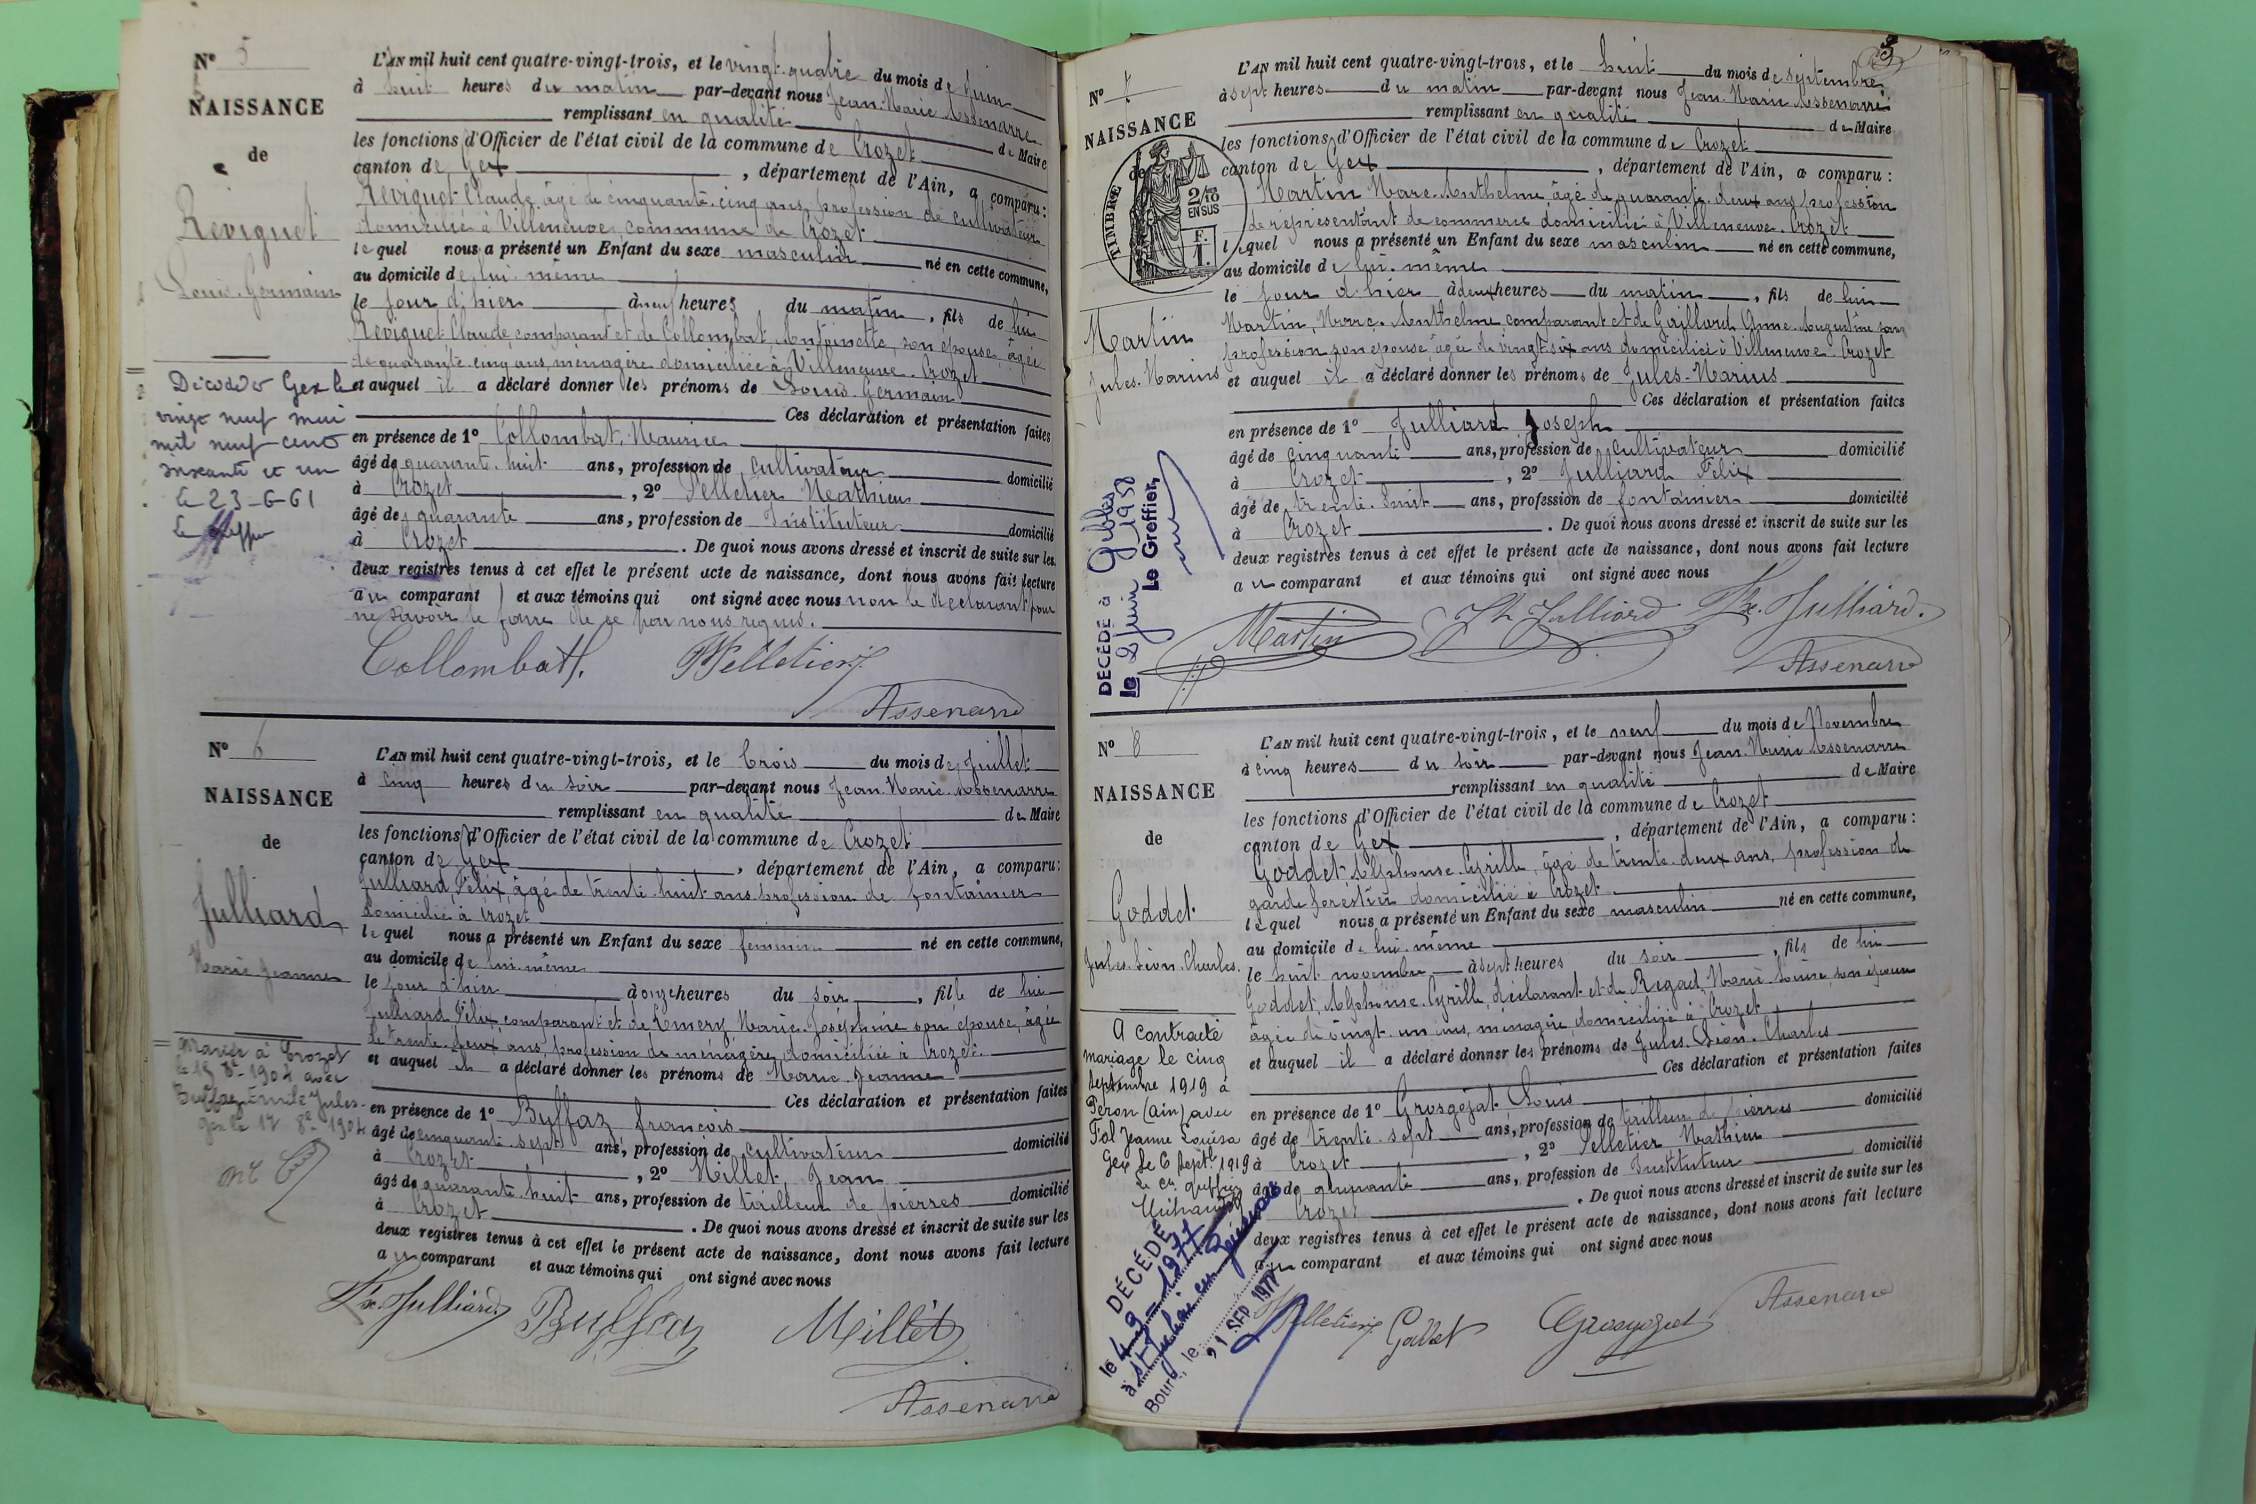 N° 5
NAISSANCE
de
Réviquet
Louis-Germain
Décédé à Gex le
vingt neuf mai
mil neuf cent
soixante et un
le 23-6-61
L'AN mil huit cent quatre-vingt-trois, et le vingt-quatre du mois de Juin
à huit heures du matin par-devant nous Jean-Marie Assenarre
remplissant en qualité de Maire
les fonctions d'Officier de l'état civil de la commune de Crozet
canton de Gex, département de l'Ain, a comparu :
Réviquet Claude, âgé de cinquante-cinq ans, profession de cultivateur
domicilié à Villeneuve, commune de Crozet
lequel nous a présenté un Enfant du sexe masculin né en cette commune,
au domicile de lui même
le jour d'hier à neuf heures du matin, fils de lui
Réviquet Claude, comparant et de Collombat, Antoinette, son épouse, âgée
de quarante-cinq ans, ménagère domiciliée à Villeneuve-Crozet
et auquel il a déclaré donner les prénoms de Louis-Germain
Ces déclaration et présentation faites
en présence de 1° Collombat, Maurice
âgé de quarante-huit ans, profession de cultivateur domicilié
à Crozet, 2° Pelletier Mathieu
âgé de quarante ans, profession de Instituteur domicilié
à Crozet. De quoi nous avons dressé et inscrit de suite sur les
deux registres tenus à cet effet le présent acte de naissance, dont nous avons fait lecture
au comparant et aux témoins qui ont signé avec nous non le déclarant pour
ne savoir le faire de ce par nous requis.
Collombat J. MPelletier
Assenarre
N° 6
NAISSANCE
de
Julliard
Marie Jeanne
Mariée à Crozet
le 15 8re 1904 avec
Buffaz Emile Jules
Gex le 17 8re 1904
L'AN mil huit cent quatre-vingt-trois, et le trois du mois de Juillet
à cinq heures du soir par-devant nous Jean-Marie Assenarre
remplissant en qualité de Maire
les fonctions d'Officier de l'état civil de la commune de Crozet
canton de Gex, département de l'Ain, a comparu :
Julliard, Félix, âgé de trente-huit ans profession de fontainier
domicilié à Crozet
lequel nous a présenté un Enfant du sexe féminin né en cette commune,
au domicile de lui même
le jour d'hier à onze heures du soir, fille de lui
Julliard Félix, comparant et de Emery Marie-Joséphine son épouse, âgée
de trente-deux ans, profession de ménagère, domiciliée à Crozet
et auquel il a déclaré donner les prénoms de Marie-Jeanne
Ces déclaration et présentation faites
en présence de 1° Buffaz François
âgé de cinquante-sept ans, profession de cultivateur domicilié
à Crozet, 2° Millet, Jean
âgé de quarante-huit ans, profession de tailleur de pierres domicilié
à Crozet. De quoi nous avons dressé et inscrit de suite sur les
deux registres tenus à cet effet le présent acte de naissance, dont nous avons fait lecture
au comparant et aux témoins qui ont signé avec nous
Fx. Julliard Buffaz Millet
Assenarre
N° 7
NAISSANCE
de
TIMBRE
2/10
EN SUS
F.
1.
Martin
Jules-Marius
DÉCÉDÉ à Gibles
le 2 Juin 1958
Le Greffier,
L'AN mil huit cent quatre-vingt-trois, et le huit du mois de septembre
à sept heures du matin par-devant nous Jean-Marie Assenarre
remplissant en qualité de Maire
les fonctions d'Officier de l'état civil de la commune de Crozet
canton de Gex, département de l'Ain, a comparu :
Martin Marc-Anthelme, âgé de quarante-deux ans, profession
de représentant de commerce domicilié à Villeneuve-Crozet
lequel nous a présenté un Enfant du sexe masculin né en cette commune,
au domicile de lui-même
le jour d'hier à deux heures du matin, fils de lui
Martin, Marc-Anthelme comparant et de Gaillard Anne-Augustine sans
profession son épouse âgée de vingt-six ans domiciliée à Villeneuve-Crozet
et auquel il a déclaré donner les prénoms de Jules-Marius
Ces déclaration et présentation faites
en présence de 1° Julliard Joseph
âgé de cinquante ans, profession de cultivateur domicilié
à Crozet, 2° Julliard Félix
âgé de trente-huit ans, profession de fontainier domicilié
à Crozet. De quoi nous avons dressé et inscrit de suite sur les
deux registres tenus à cet effet le présent acte de naissance, dont nous avons fait lecture
au comparant et aux témoins qui ont signé avec nous
Martin Jh Julliard Fx. Julliard.
Assenarre
N° 8
NAISSANCE
de
Goddet
Jules-Léon-Charles.
A contracté
mariage le cinq
septembre 1919 à
Péron (Ain) avec
Fol Jeanne Louisa
Gex le 6 Septbre 1919
DÉCÉDÉ
le 4-9-1977
à St-Julien en Genevois
Bourg, le 21 SEP. 1977
L'AN mil huit cent quatre-vingt-trois, et le neuf du mois de Novembre
à cinq heures du soir par-devant nous Jean-Marie Assenarre
remplissant en qualité de Maire
les fonctions d'Officier de l'état civil de la commune de Crozet
canton de Gex, département de l'Ain, a comparu :
Goddet Alphonse-Cyrille, âgé de trente-deux ans, profession de
garde forestier domicilié à Crozet
lequel nous a présenté un Enfant du sexe masculin né en cette commune,
au domicile de lui-même
le huit novembre à sept heures du soir, fils de lui
Goddet, Alphonse-Cyrille, déclarant et de Rigad, Marie-Louise, son épouse
âgée de vingt-un ans, ménagère domiciliée à Crozet
et auquel il a déclaré donner les prénoms de Jules-Léon-Charles
Ces déclaration et présentation faites
en présence de 1° Grosgojat-Louis
âgé de trente-sept ans, profession de tailleur de pierres domicilié
à Crozet, 2° Pelletier Mathieu
âgé de quarante ans, profession de Instituteur domicilié
à Crozet. De quoi nous avons dressé et inscrit de suite sur les
deux registres tenus à cet effet le présent acte de naissance, dont nous avons fait lecture
au comparant et aux témoins qui ont signé avec nous
MPelletier Goddet Grosgojat Assenarre